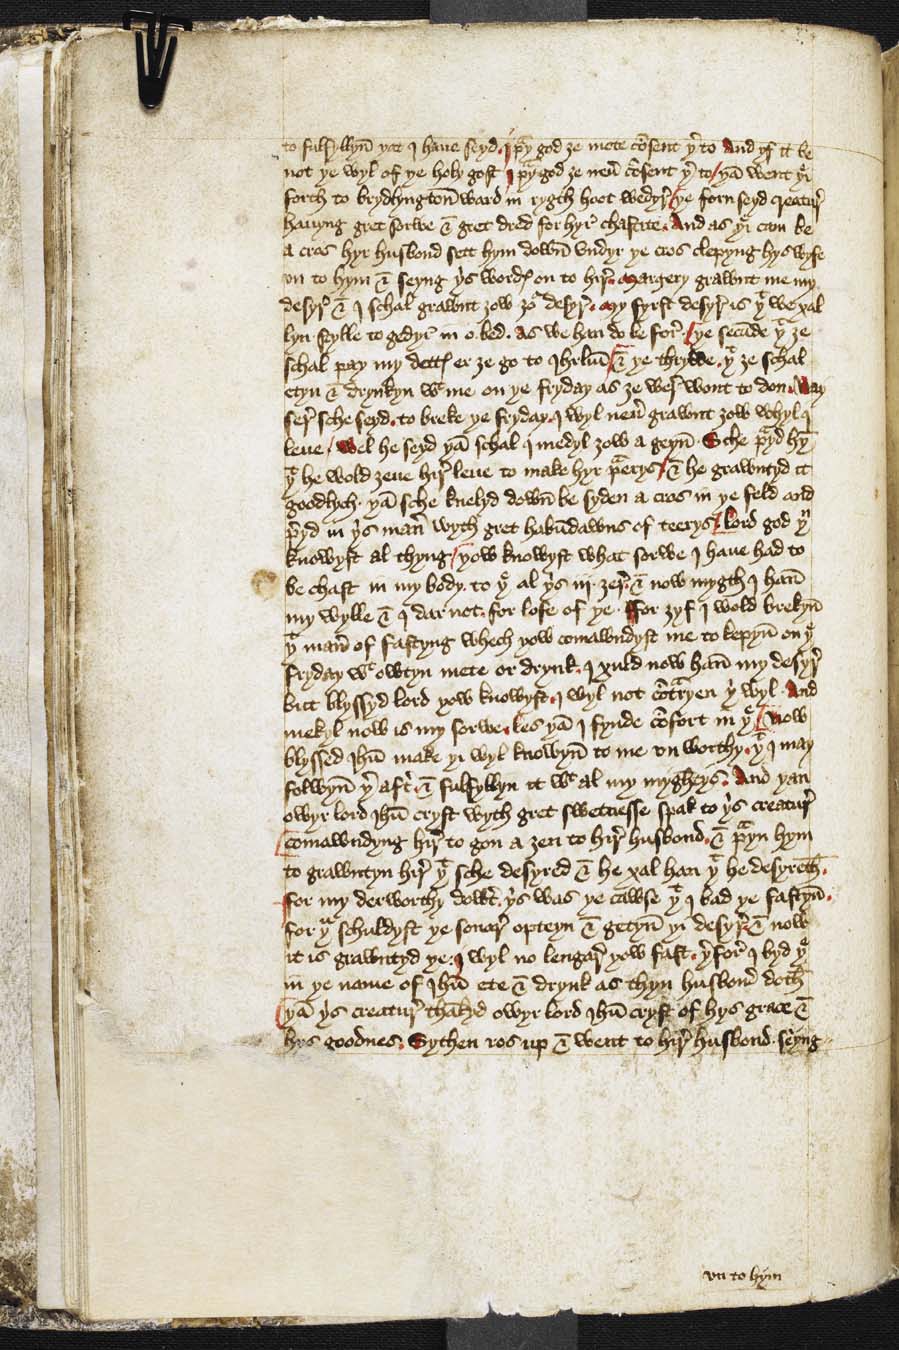 to fulfyllyn̄ yat I haue seyd. I p̄y god ȝe mote cōsent yͬ to And yf it be
not ye wyl of ye holy gost I p̄y god ȝe neu̾ cōsent yͬ to / yā went yͥ
forth to brydlyngton̄ ward in rygth hoot wedyr̾ / ye forn seyd creatur̾
hauyng gret sorwe & gret dred for hyr̾ chastite. And as yͥ cam be
a cros hyr husbond sett hym down̄ vndyr ye cros clepyng hys wyfe
vn to hym & seyng yˢ wordꝭ on to hir̾. Margery grawnt me my
desyr̾ & I schal grawnt ȝow ȝoͬ desyr̾. My fyrst desyr̾ is yᵗ we xal
lyn stylle to gedyr̾ in o bed. as we han do be for̾. / ye secūde yᵗ ȝe
schal pay my dettꝭ er ȝe go to Ihrlm̄ / & ye thrydde. yᵗ ȝe schal
etyn & drynkyn wᵗ me on ye fryday as ȝe wer̾ wont to don. Nay
ser̾ sche seyd. to breke ye fryday. I wyl neu̾ grawnt ȝow whyl I
leue / Wel he seyd yā schal I medyl ȝow a geyn̄. Sche p̄yd hȳ
yᵗ he wold ȝeue hir̾ leue to make hyr p̄erys / & he grawntyd it
goodlych. yā sche knelyd down̄ be syden a cros in ye feld and
p̄yd in yˢ man̾ wyth gret habūdawns of teerys / Lord god yᵘ
knowyst al thyng / yow knowyst what sorwe I haue had to
be chast in my body. to yᵉ al yˢ iij ȝer̾. & now mygth I han̄
my wylle & I dar not. for lofe of ye. ffor ȝyf I wold brekyn̄
yᵗ man̾ of fastyng whech yow comawndyst me to kepyn̄ on yᵉ
fryday wᵗ owtyn mete or drynk. I xuld now han̄ my desyr̾
but blyssyd lord yow knowyst. I wyl not cōtr̄yen yͥ wyl. And
mekyl now is my sorwe. les yā I fynde cōfort in yᵉ / Now
blyssed Ihū make yi wyl knowyn̄ to me vn worthy. yᵗ I may
folwyn̄ yͬ aft̾. & fulfyllyn it wᵗ al my myghtys̄. And yan
owyr lord Ihū cryst wyth gret swetnesse spak to yˢ creatur̾
comawndyng hir̾ to gon a ȝen to hir̾ husbond. & p̄yn hym
to grawntyn hir̾ yᵗ sche desyred & he xal han yᵗ he desyreth̄.
ffor my derworthy dowt̾. yˢ was ye cawse yᵗ I bad ye fastyn̄.
for yᵘ schuldyst ye sonar̾ opteyn & getyn̄ yi desyr̾. & now
it is grawntyd ye. I wyl no lengar̾ yow fast. yͬfor̾ I byd yᵉ
in ye name of Ihū ete & drynk as thyn husbond̾ doth̄
yā yˢ creatur̾ thākyd owyr lord Ihū cryst of hys grace &
hys goodnes. Sythen ros up & went to hir̾ husbond. seyng
vn to hym